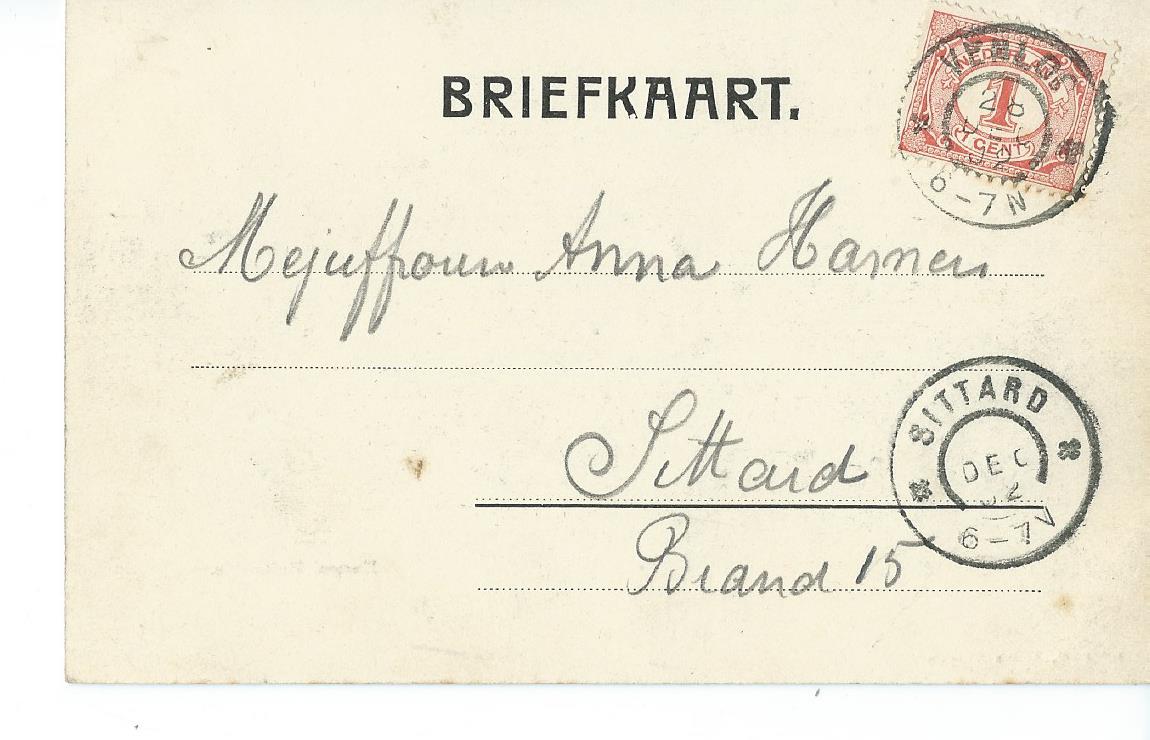 BRIEFKAART.
NEDERLAND
1
1 CENT
VENLOO
28
DEC
02
6-7N
Mejuffrouw Anna Hamers
Sittard
Brand 15
SITTARD
DEC
02
6-7V